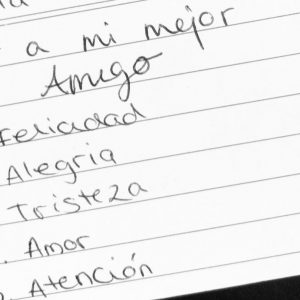 a mi mejor
Amigo
Feliciadad
Alegria
Tristeza
Amor
Atención